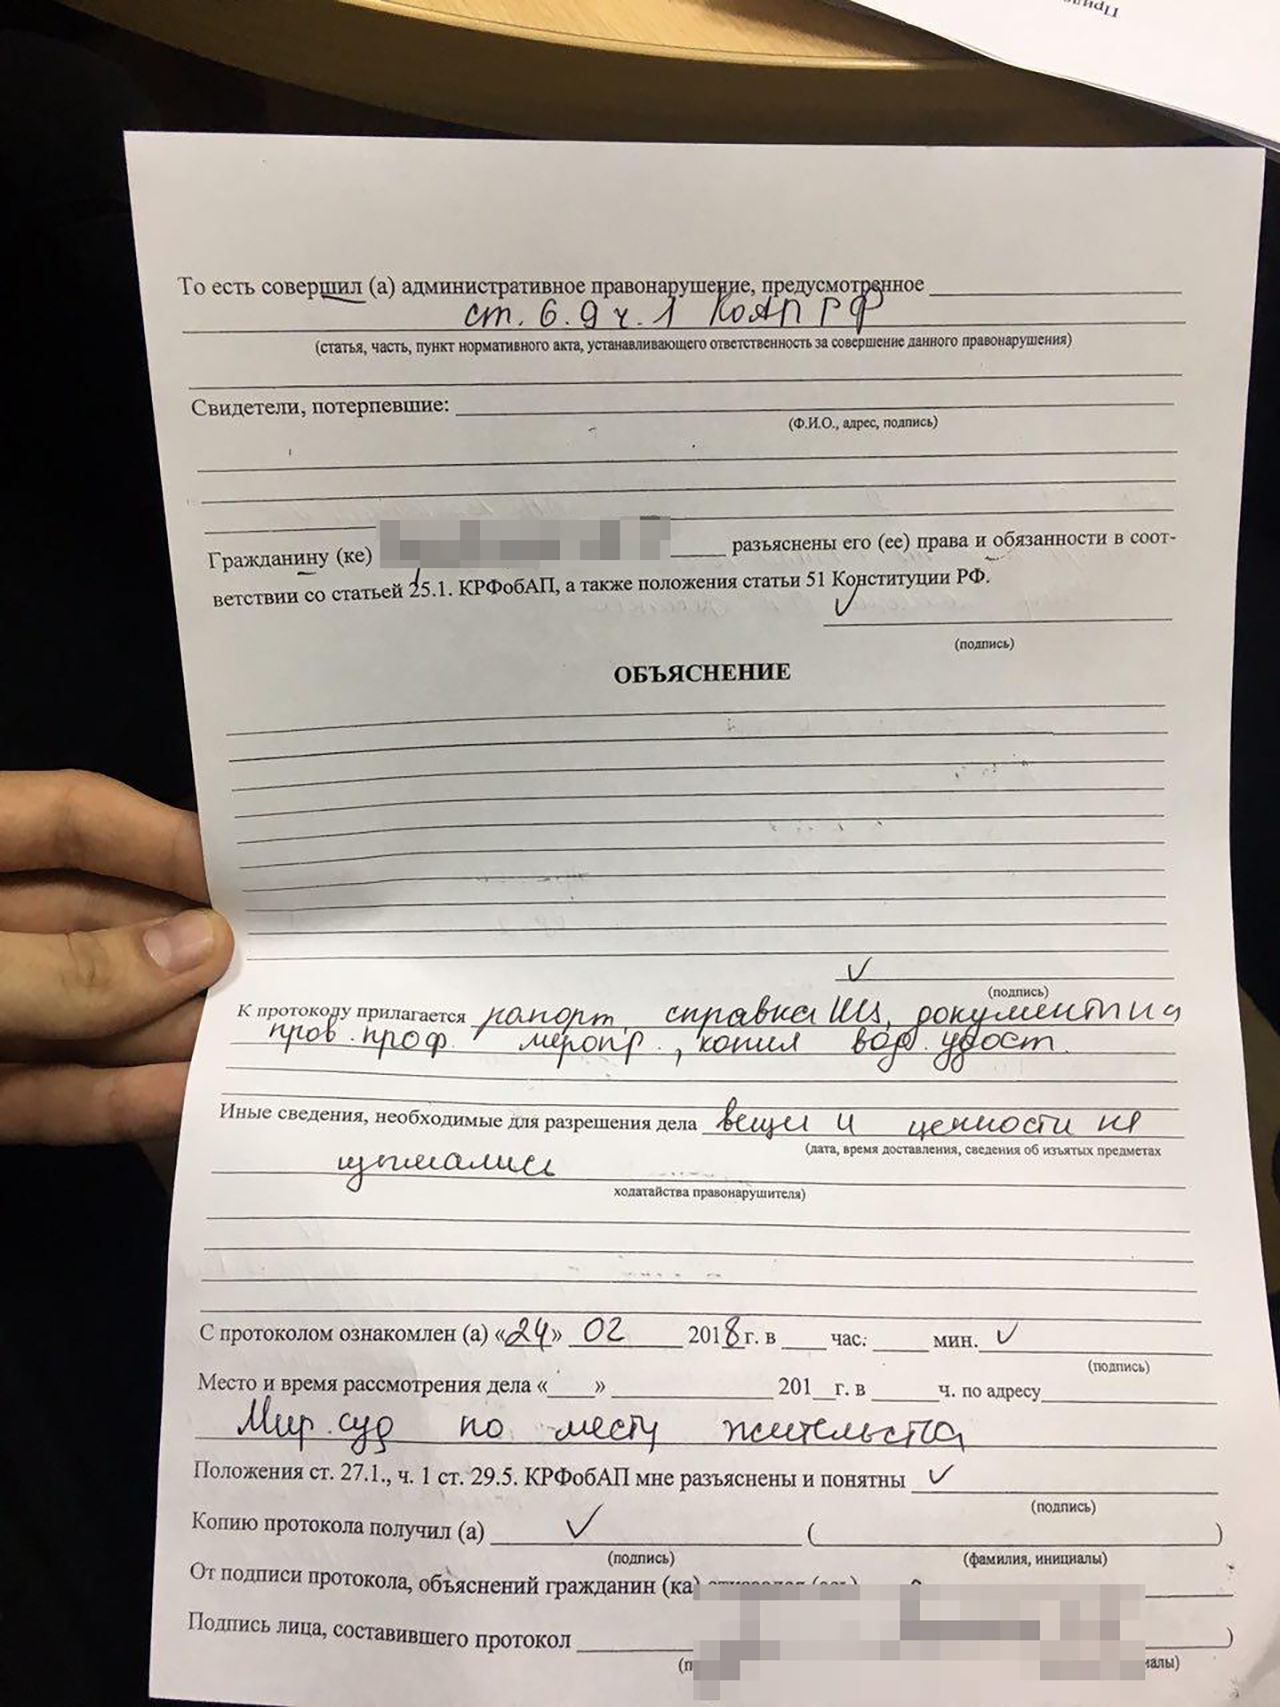 То есть совершил (а) административное правонарушение, предусмотренное
ст. 6.9 ч. 1 КоАП РФ
(статья, часть, пункт нормативного акта, устанавливающего ответственность за совершение данного правонарушения)
Свидетели, потерпевшие:
(Ф.И.О., адрес, подпись)
Гражданину (ке) разъяснены его (ее) права и обязанности в соот-
ветствии со статьей 25.1. КРФобАП, а также положения статьи 51 Конституции РФ.
(подпись)
ОБЪЯСНЕНИЕ
(подпись)
К протоколу прилагается рапорт, справка ИЦ, документы на
пров. проф. меропр., копия вод. удост.
Иные сведения, необходимые для разрешения дела вещи и ценности не
(дата, время доставления, сведения об изъятых предметах
изымались
ходатайства правонарушителя)
С протоколом ознакомлен (а) «24» 02 2018 г. в час. мин.
(подпись)
Место и время рассмотрения дела « » 201 г. в ч. по адресу
Мир. суд по месту жительства
Положения ст. 27.1., ч. 1 ст. 29.5. КРФобАП мне разъяснены и понятны
(подпись)
Копию протокола получил (а) ( )
(подпись) (фамилия, инициалы)
От подписи протокола, объяснений гражданин (ка)
Подпись лица, составившего протокол )